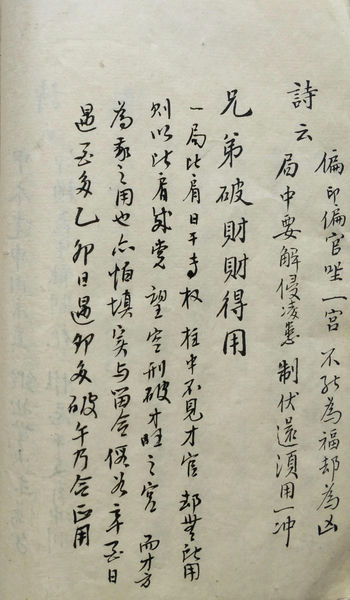 詩云
偏印偏官坐一宫 不能為福却為凶
局中要解侵凌患 制伏還須用一冲
兄弟破財財得用
一局比肩日干専权 柱中不見才官 却無所用
則以比肩成党 望空刑破才旺之宫 而才方
為我之用也 亦怕填实与留合 假如辛酉日
遇酉多 乙卯日遇卯多 破午乃合正用